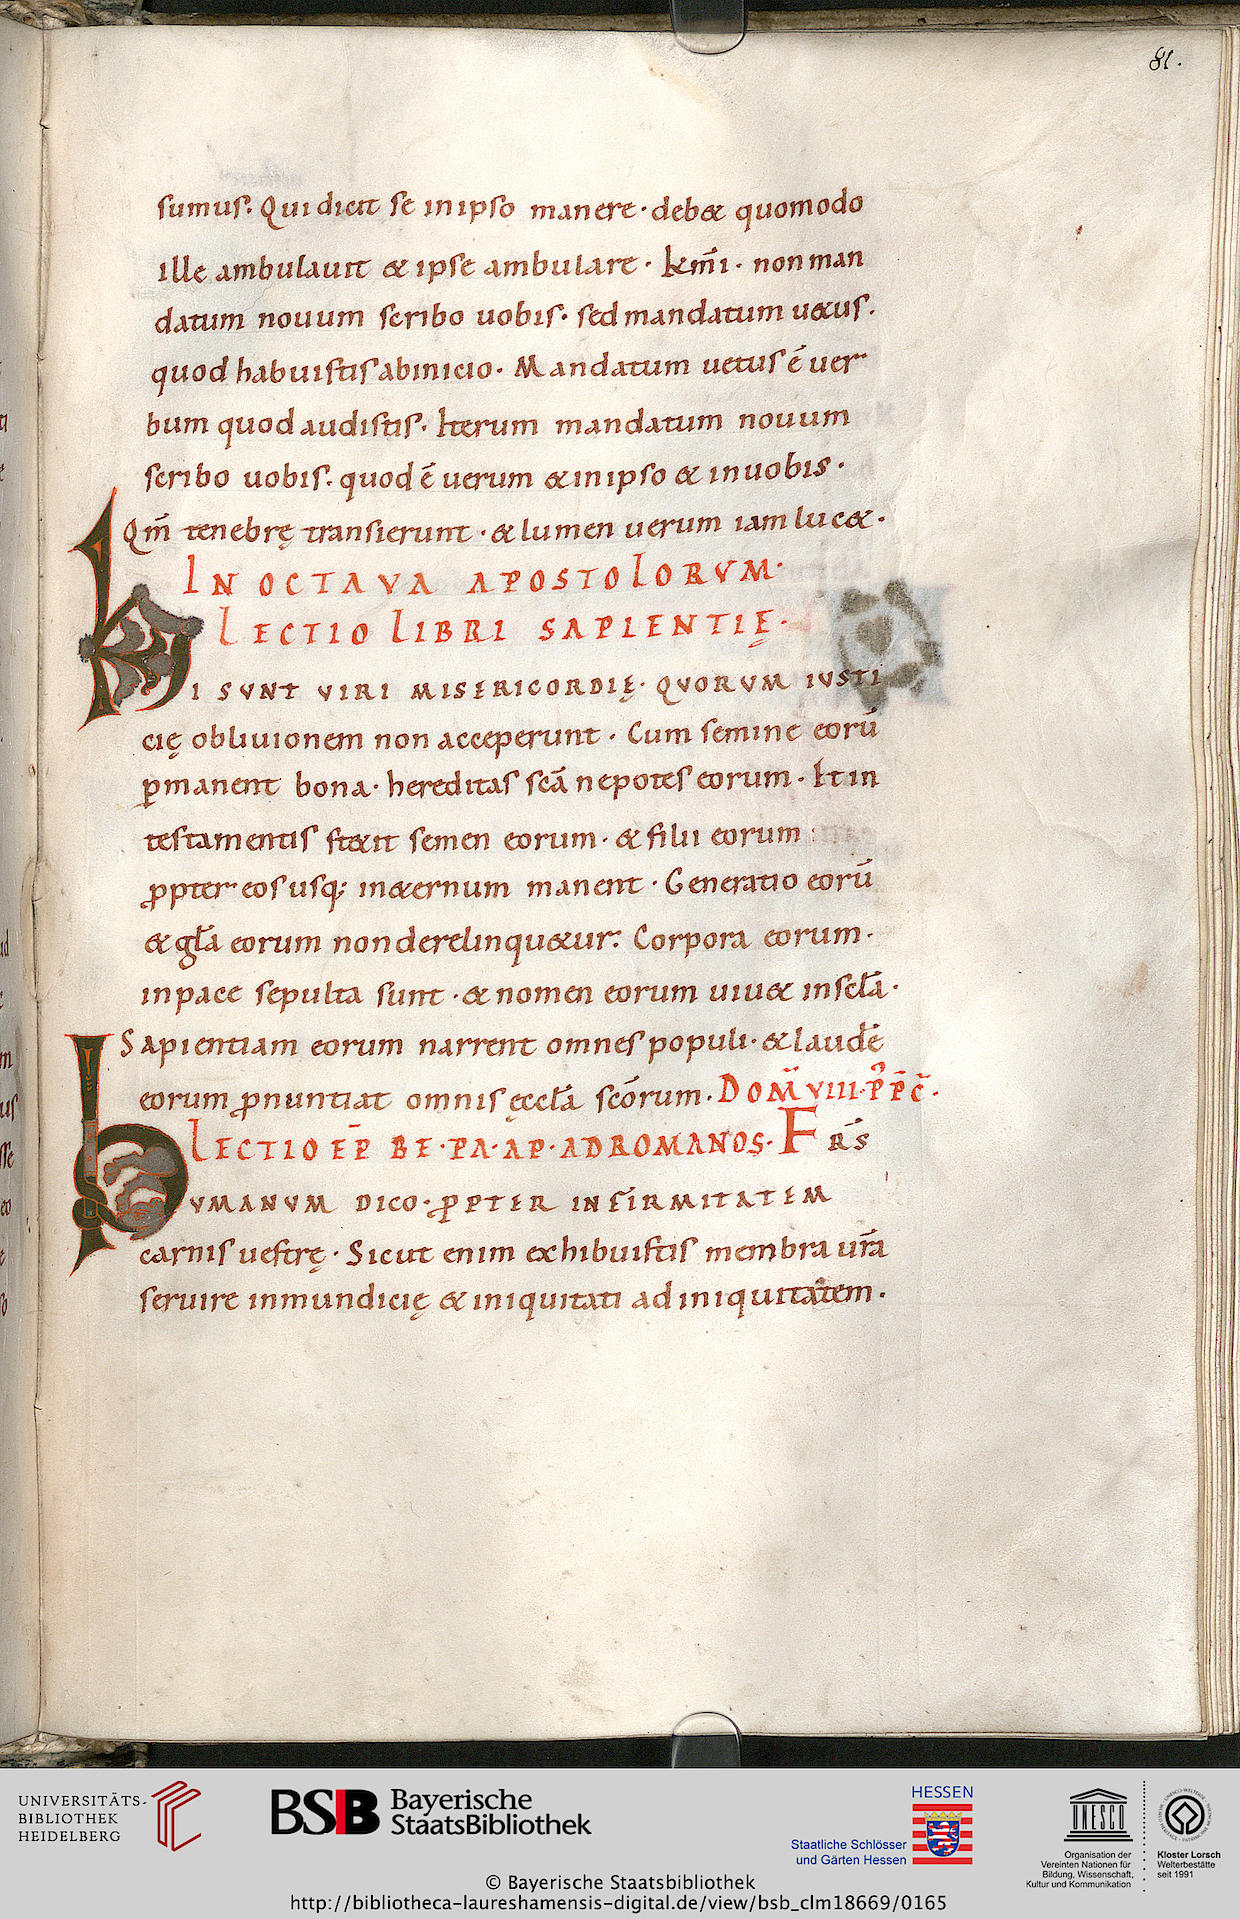 81.
sumus. Qui dicit se in ipso manere · debet quomodo
ille ambulauit & ipse ambulare · km̄i · non man
datum nouum scribo uobis · sed mandatum uetus.
quod habuistis ab inicio · Mandatum uetus ē uer
bum quod audistis · Iterum mandatum nouum
scribo uobis. quod ē uerum & in ipso & in uobis ·
Qm̄ tenebrę transierunt · & lumen uerum iam lucet ·
IN OCTAVA APOSTOLORVM·
LECTIO LIBRI SAPIENTIĘ·
HI SVNT VIRI MISERICORDIĘ· QVORVM IVSTI
cię obliuionem non acceperunt · Cum semine eorū
ꝑmanent bona · hereditas scā nepotes eorum · Et in
testamentis stetit semen eorum · & filii eorum :
ꝓpter eos usq; in æternum manent · Generatio eorū
& gła eorum non derelinquetur. Corpora eorum ·
in pace sepulta sunt · & nomen eorum uiuet in scła ·
Sapientiam eorum narrent omnes populi · & laudē
eorum ꝓnuntiat omnis ęccła scōrum. DOM̄ VIII· P̄ P̄C̄·
LECTIO EP̄ BE·PA·AP·AD ROMANOS· FR̄S
HUMANVM DICO·ꝒPTER INFIRMITATEM
carnis uestrę · Sicut enim exhibuistis membra ur̄a
seruire inmundicię & iniquitati ad iniquitatem ·
UNIVERSITÄTS-
BIBLIOTHEK
HEIDELBERG
BSB Bayerische
StaatsBibliothek
HESSEN
Staatliche Schlösser
und Gärten Hessen
UNESCO
Organisation der
Vereinten Nationen für
Bildung, Wissenschaft,
Kultur und Kommunikation
Kloster Lorsch
Welterbestätte
seit 1991
© Bayerische Staatsbibliothek
http://bibliotheca-laureshamensis-digital.de/view/bsb_clm18669/0165